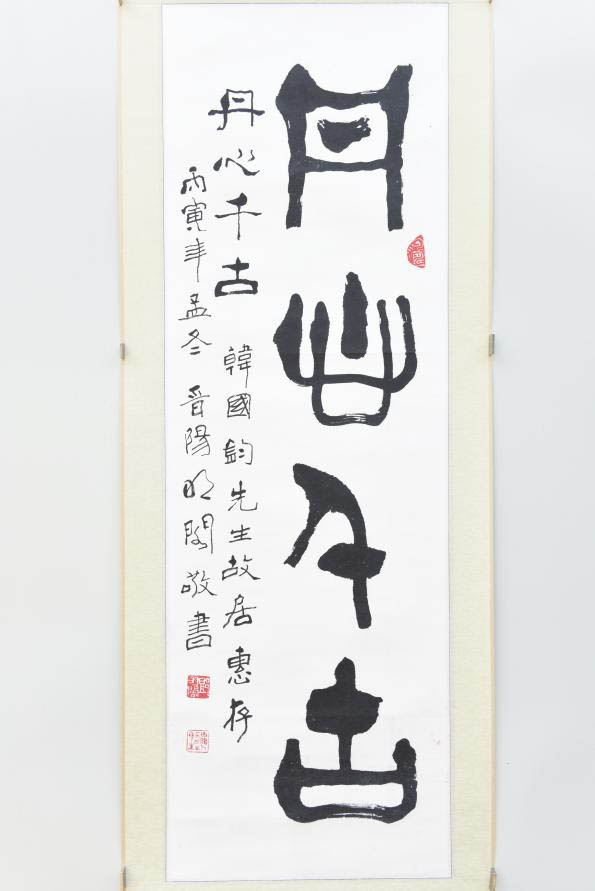 丹心千古
丹心千古 韓國鈞先生故居惠存
丙寅年孟冬 晋陽明閣敬書